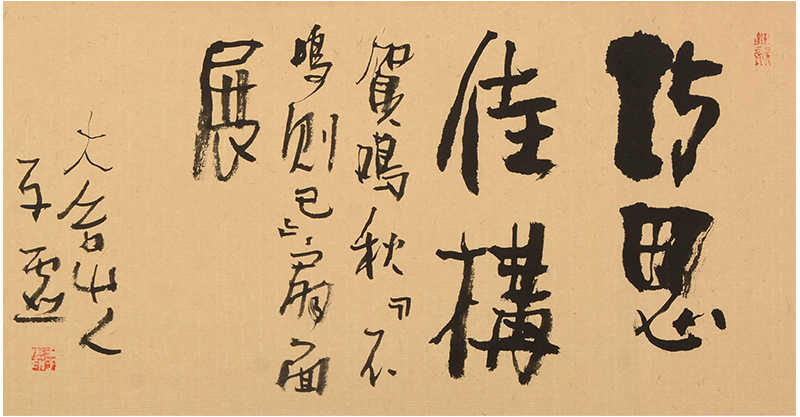 巧思
佳構
賀鳴秋『不
鳴則已』扇面
展
大山人